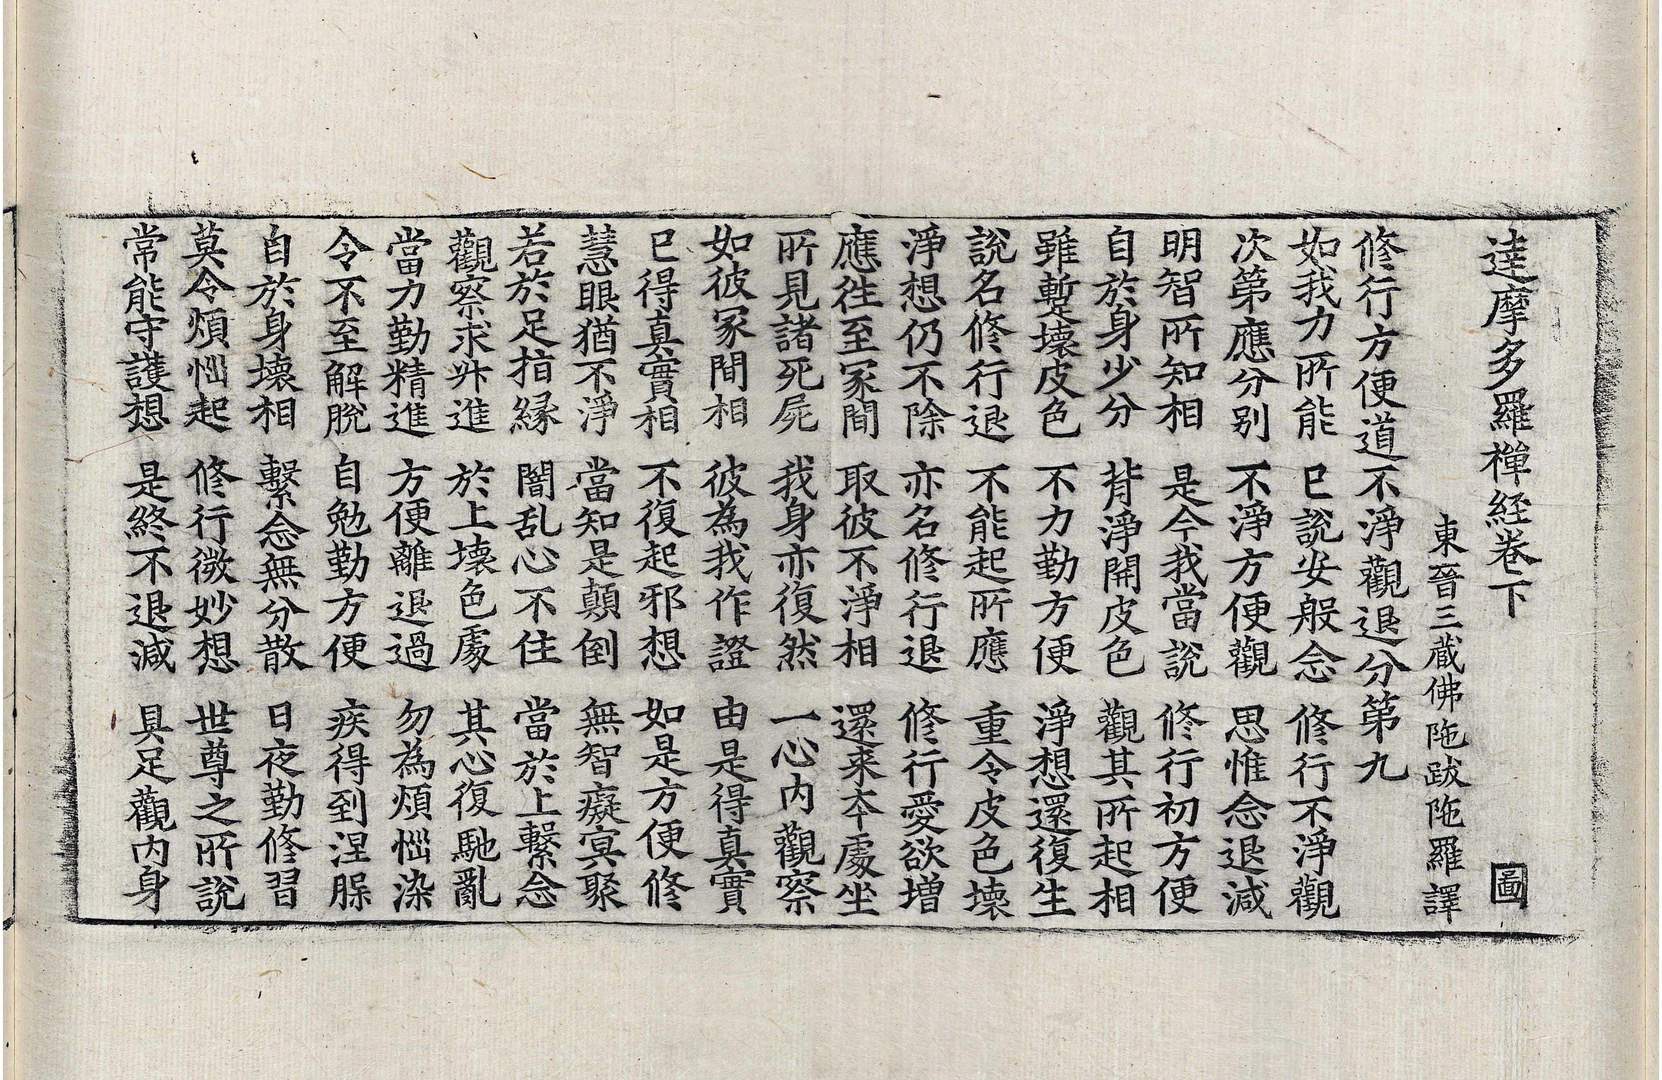 達摩多羅禪経卷下 圖
東晉三藏佛陁跋陁羅譯
修行方便道不淨觀退分第九
如我力所能 已說安般念 修行不淨觀
次第應分别 不淨方便觀 思惟念退減
明智所知相 是今我當說 修行初方便
自於身少分 背淨開皮色 觀其所起相
雖蹔壞皮色 不力勤方便 淨想還復生
說名修行退 不能起所應 重令皮色壞
淨想仍不除 亦名修行退 修行愛欲増
應往至冢間 取彼不淨相 還来夲處坐
所見諸死屍 我身亦復然 一心内觀察
如彼冢間相 彼為我作證 由是得真實
已得真實相 不復起邪想 如是方便修
慧眼猶不淨 當知是顛倒 無智癡㝠聚
若於足指緣 闇乱心不住 當於上繫念
觀察求升進 於上壞色處 其心復馳亂
當力勤精進 方便離退過 勿為煩惱染
令不至解脫 自勉勤方便 疾得到涅槃
自於身壞相 繫念無分散 日夜勤修習
莫令煩惱起 修行微妙想 世尊之所說
常能守護想 是終不退減 具足觀内身